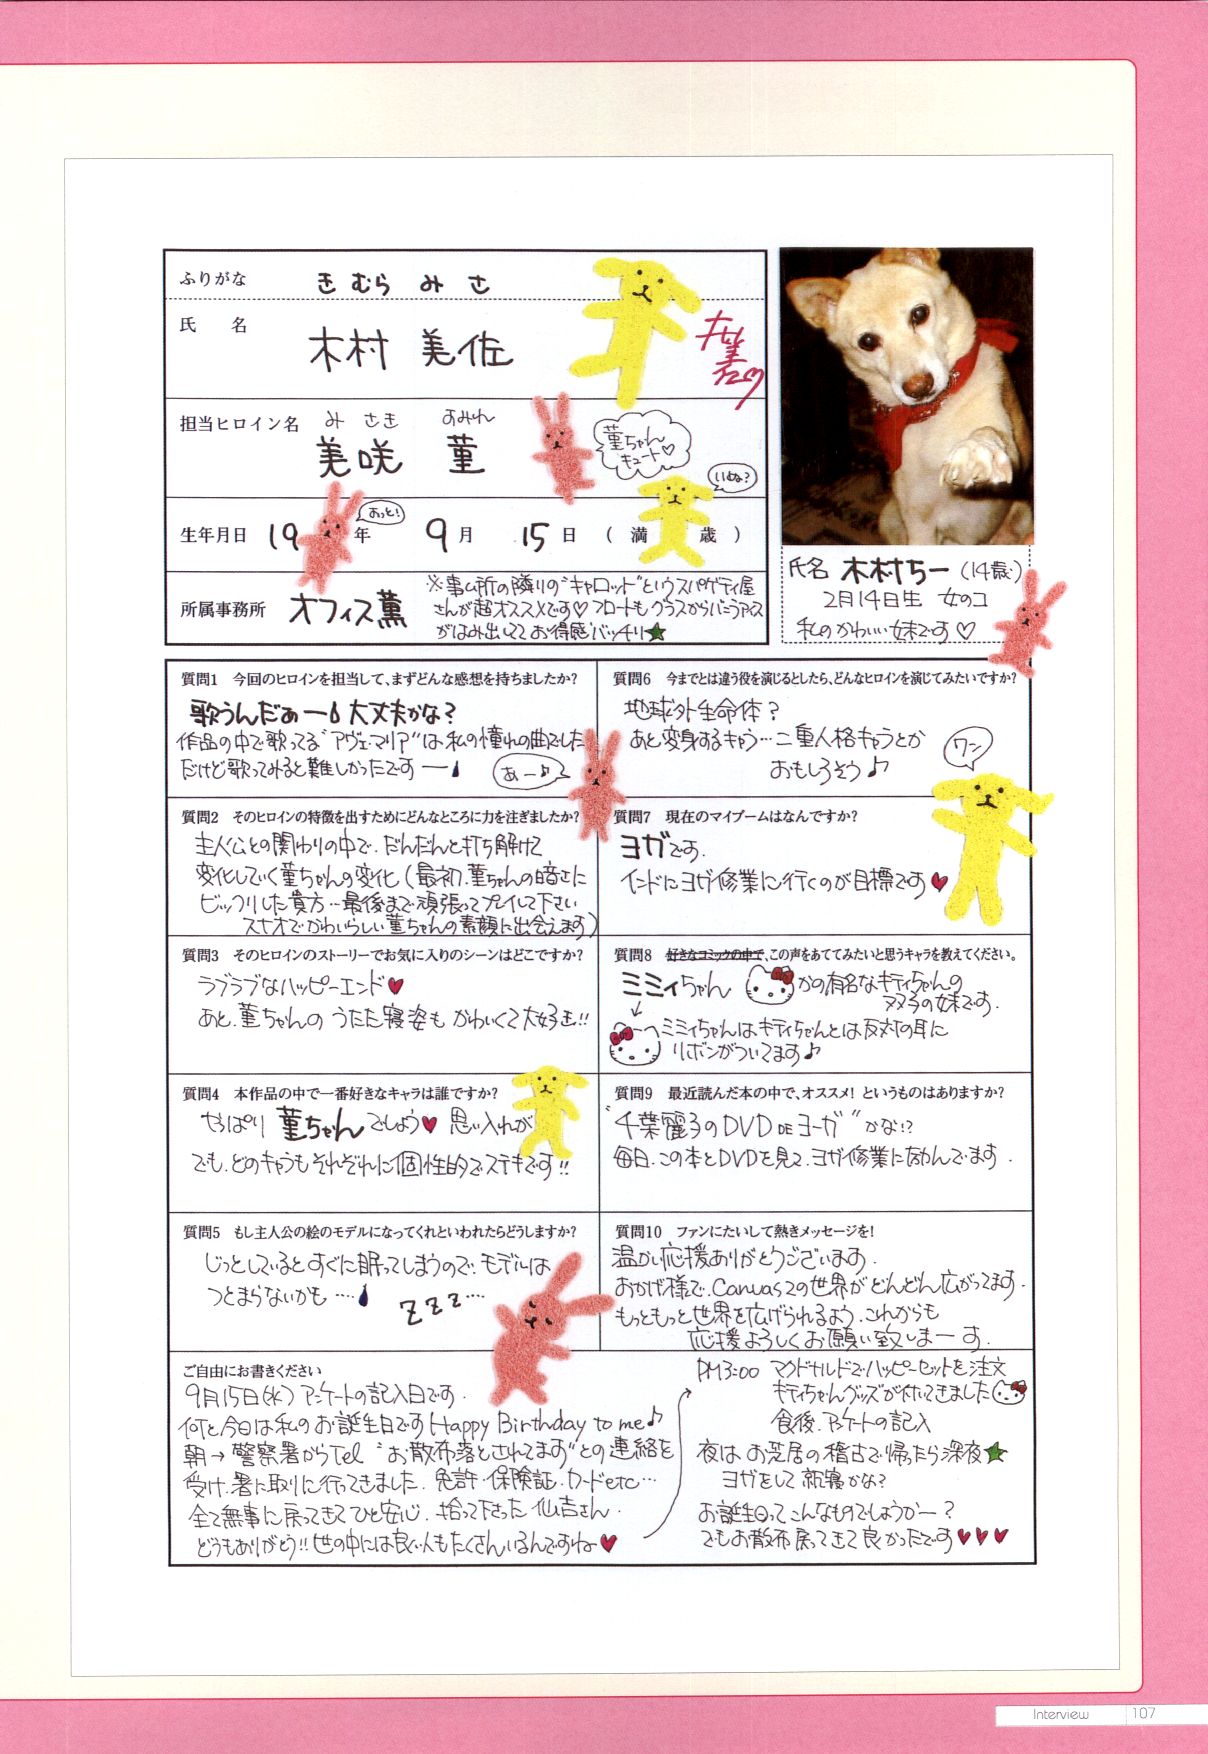 ふりがな きむら みさ
氏 名 木村 美佐
担当ヒロイン名 みさき すみれ
美咲 菫
菫ちゃん
キュート♡
いぬ?
生年月日 19 年 9月 15日 (満 歳)
おっと!
所属事務所 オフィス薫
※事ム所の隣りの"キャロット"というスパゲティ屋
さんが超オススメです♡フロートもグラスからバニラアイス
がはみ出しててお得感バッチリ★
氏名 木村ちー(14歳)
2月14日生 女のコ
私のかわいい妹です♡
質問1 今回のヒロインを担当して、まずどんな感想を持ちましたか?
歌うんだぁー 大丈夫かな?
作品の中で歌ってる"アヴェ・マリア"は私の憧れの曲でした
だけど歌ってみると難しかったですー
あー♪
質問2 そのヒロインの特徴を出すためにどんなところに力を注ぎましたか?
主人公との関わりの中で、だんだんと打ち解けて
変化していく菫ちゃんの変化(最初、菫ちゃんの暗さに
ビックリした貴方…最後まで頑張ってプレイして下さい
スナオでかわいらしい菫ちゃんの素顔に出会えます)
質問3 そのヒロインのストーリーでお気に入りのシーンはどこですか?
ラブラブなハッピーエンド♥
あと、菫ちゃんの うたた寝姿も かわいくて大好き!!
質問4 本作品の中で一番好きなキャラは誰ですか?
やっぱり 菫ちゃんでしょう♥ 思い入れが
でも、どのキャラもそれぞれに個性的でステキです!!
質問5 もし主人公の絵のモデルになってくれといわれたらどうしますか?
じっとしているとすぐに眠ってしまうので、モデルは
つとまらないかも ‥‥
ZZZ‥‥
質問6 今までとは違う役を演じるとしたら、どんなヒロインを演じてみたいですか?
地球外生命体?
あと変身するキャラ…二重人格キャラとか
おもしろそう♪
ワン
質問7 現在のマイブームはなんですか?
ヨガです.
インドにヨガ修業に行くのが目標です♥
質問8 好きなコミックの中で、この声をあててみたいと思うキャラを教えてください。
ミミィちゃん かの有名なキティちゃんの
フタ子の妹です.
ミミィちゃんはキティちゃんとは反対の耳に
リボンがついてます♪
質問9 最近読んだ本の中で、オススメ! というものはありますか?
"千葉麗子のDVD DE ヨーガ"かな!?
毎日、この本とDVDを見て、ヨガ修業に励んでます.
質問10 ファンにたいして熱きメッセージを!
温かい応援ありがとうございます.
おかげ様で、Canvas2の世界がどんどん広がってます.
もっともっと世界を広げられるよう、これからも
応援よろしくお願い致しまーす.
ご自由にお書きください
9月15日(水)アンケートの記入日です.
何と、今日は私のお誕生日です Happy Birthday to me♪
朝→警察署からTel "お散布落とされてます"との連絡を
受け、署に取りに行ってきました. 免許・保険証・カードetc…
全て無事に戻ってきてひと安心. 拾って下さった仙吉さん.
どうもありがとう!!世の中には良い人もたくさんいるんですね♥
PM3:00 マクドナルドでハッピーセットを注文
キティちゃんグッズが付いてきました
食後、アンケートの記入
夜は お芝居の稽古で 帰ったら深夜★
ヨガをして 就寝かな?
お誕生日ってこんなものでしょうかー?
でもお散布戻ってきて良かったです♥♥♥
Interview 107